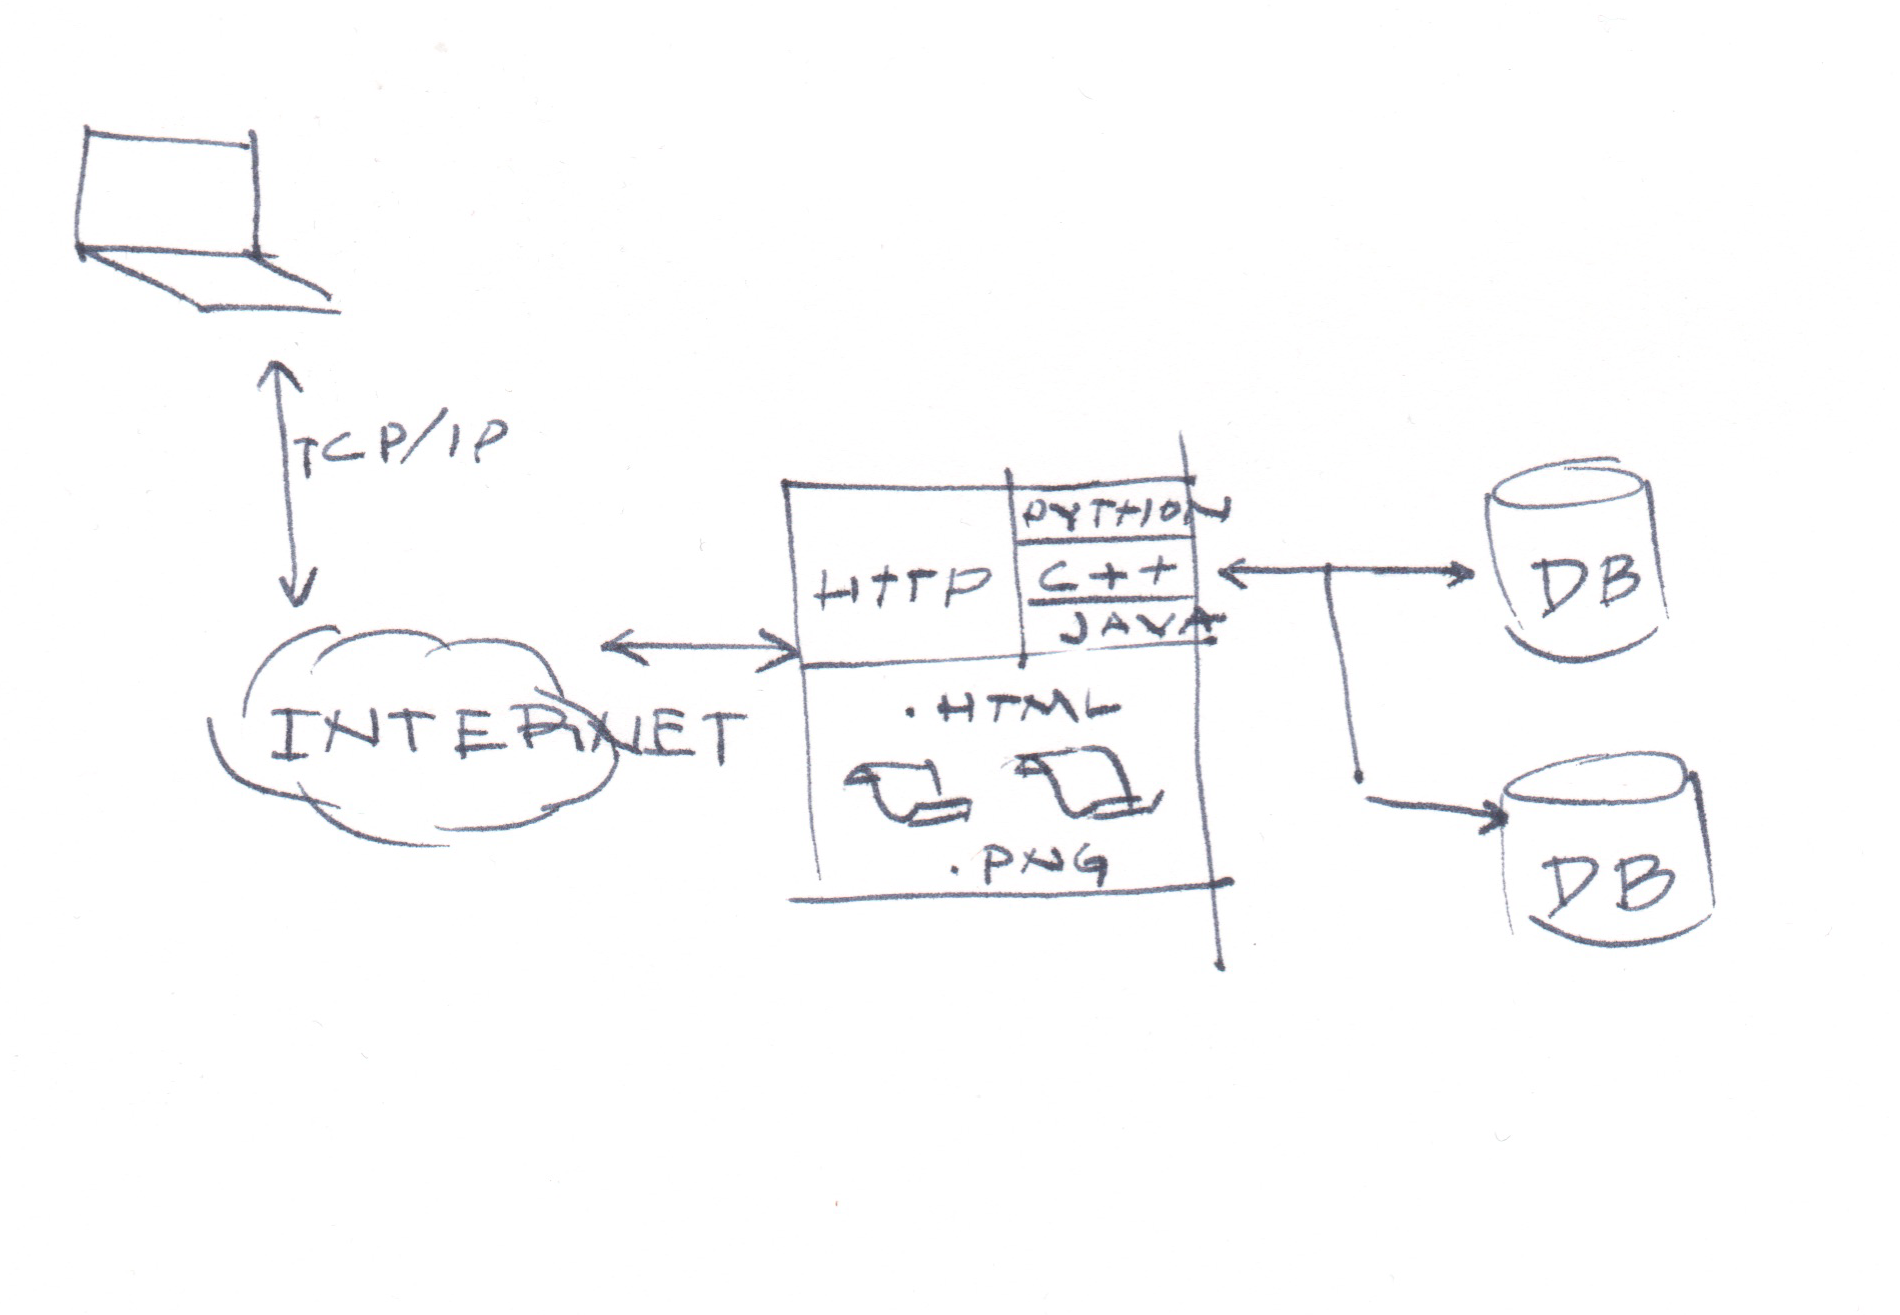 TCP/IP
INTERNET
HTTP
PYTHON
C++
JAVA
.HTML
.PNG
DB
DB